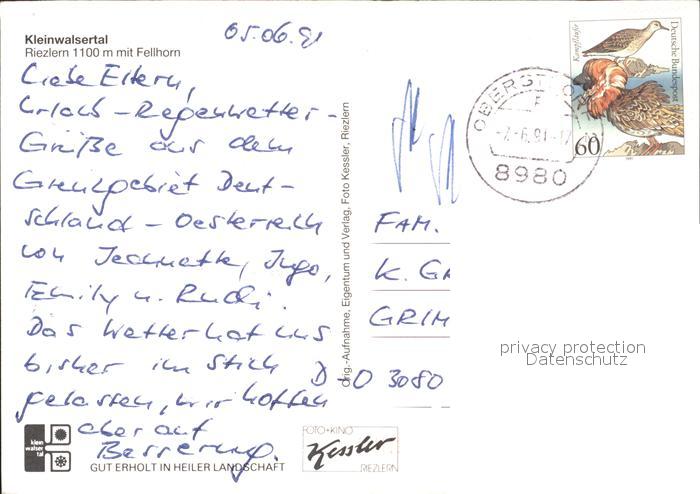 05.06.91
Kleinwalsertal
Riezlern 1100 m mit Fellhorn
Liebe Eltern,
Urlaub-Regenwetter-
Grüße aus dem
Grenzgebiet Deut-
schland - Oesterreich
von Jeannette, Ingo,
Emily u. Rudi.
Das Wetter hat uns
bisher im Stich
gelassen, wir hoffen
aber auf
Besserung.
klein
walser
tal
GUT ERHOLT IN HEILER LANDSCHAFT
FOTO+KINO
Kessler
RIEZLERN
Orig.-Aufnahme, Eigentum und Verlag, Foto Kessler, Riezlern
Kampfläufer
Deutsche Bundespost
60
OBERSTDO
-7.-6.91-17
8980
FAM.
K. GA
GRIM
D-O 3080
privacy protection
Datenschutz